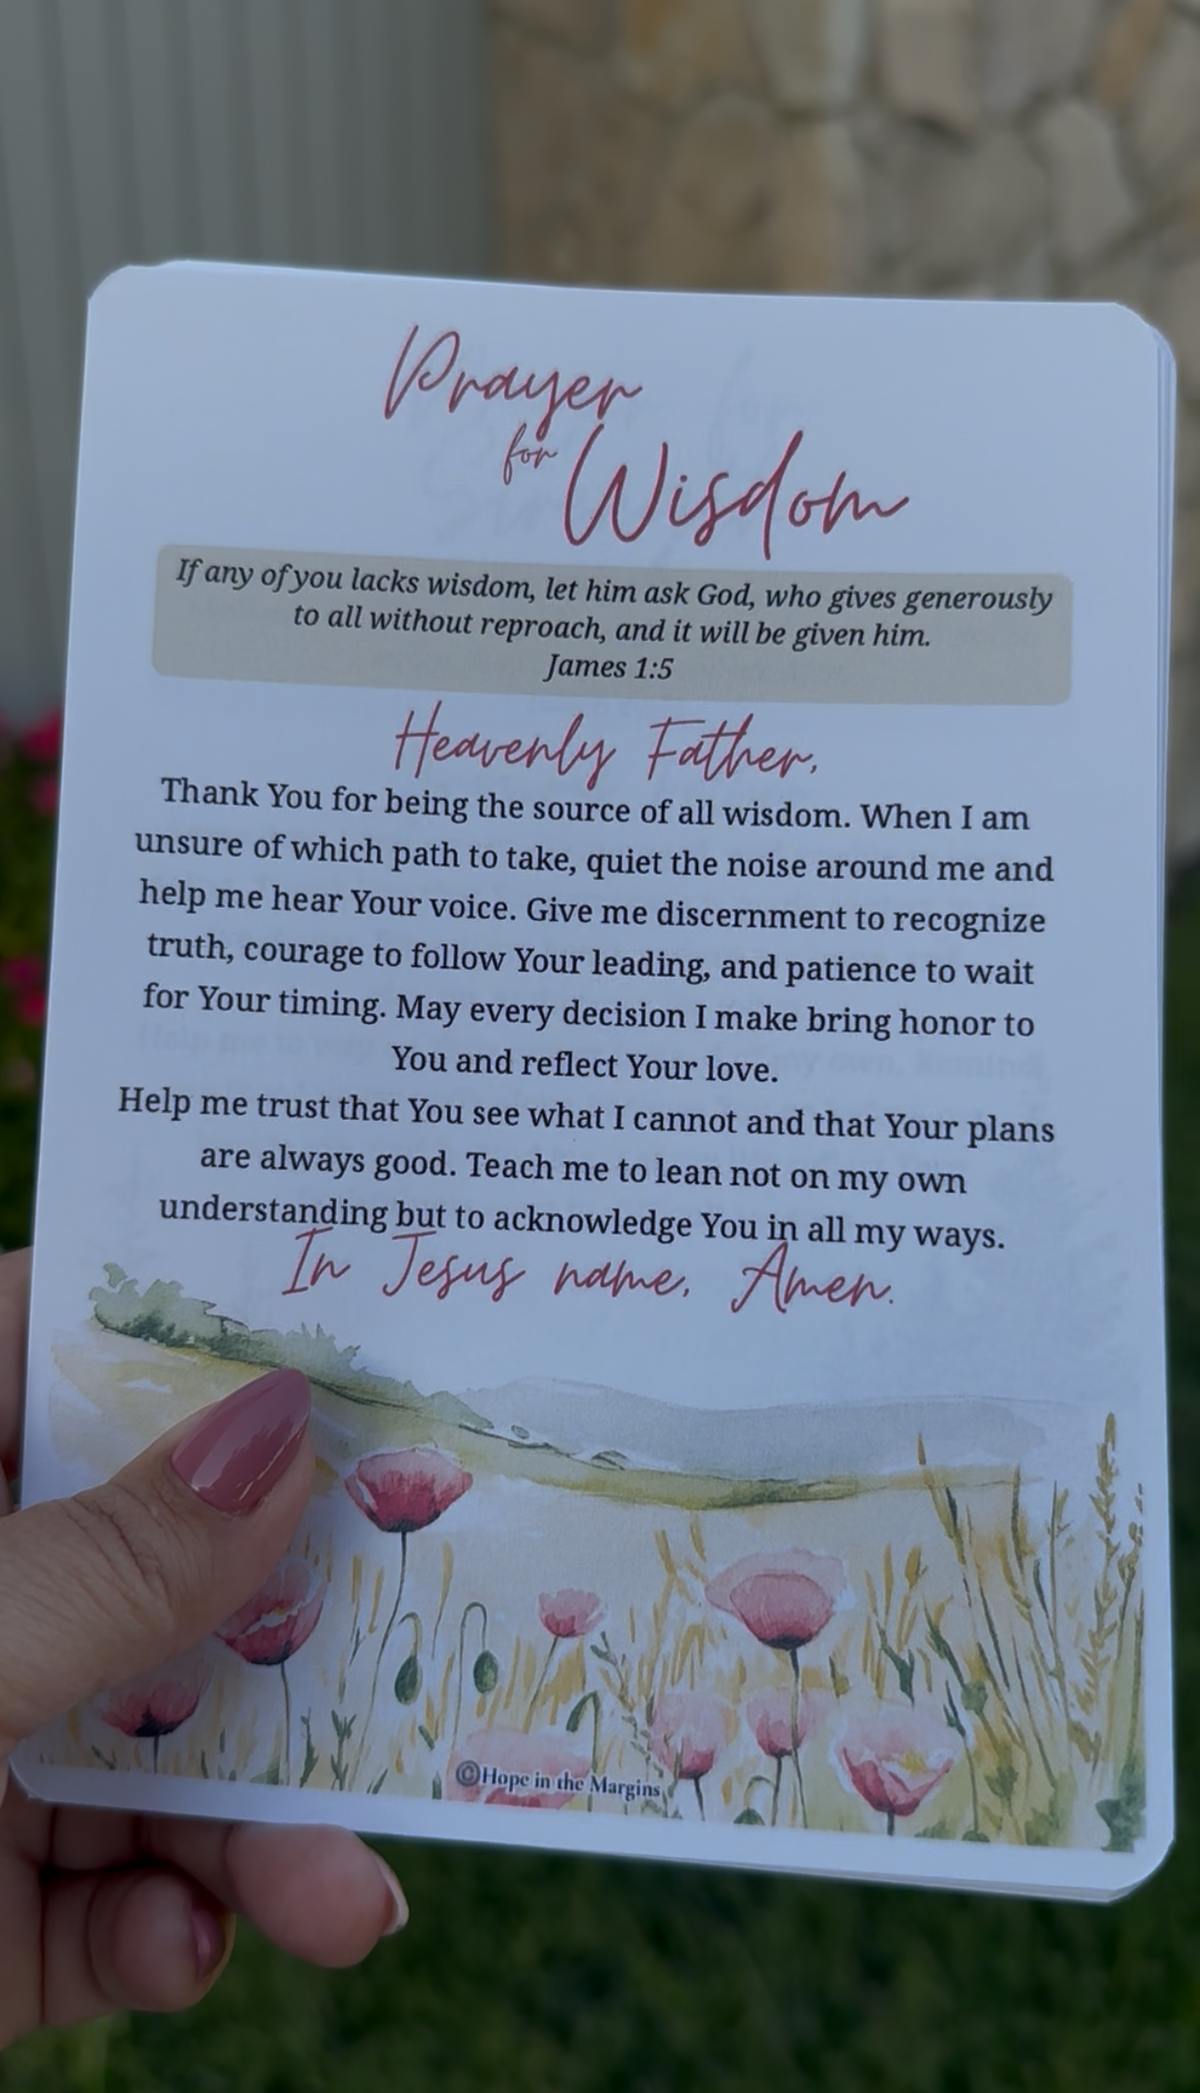 Prayer
for Wisdom
If any of you lacks wisdom, let him ask God, who gives generously
to all without reproach, and it will be given him.
James 1:5
Heavenly Father,
Thank You for being the source of all wisdom. When I am
unsure of which path to take, quiet the noise around me and
help me hear Your voice. Give me discernment to recognize
truth, courage to follow Your leading, and patience to wait
for Your timing. May every decision I make bring honor to
You and reflect Your love.
Help me trust that You see what I cannot and that Your plans
are always good. Teach me to lean not on my own
understanding but to acknowledge You in all my ways.
In Jesus name, Amen.
©Hope in the Margins